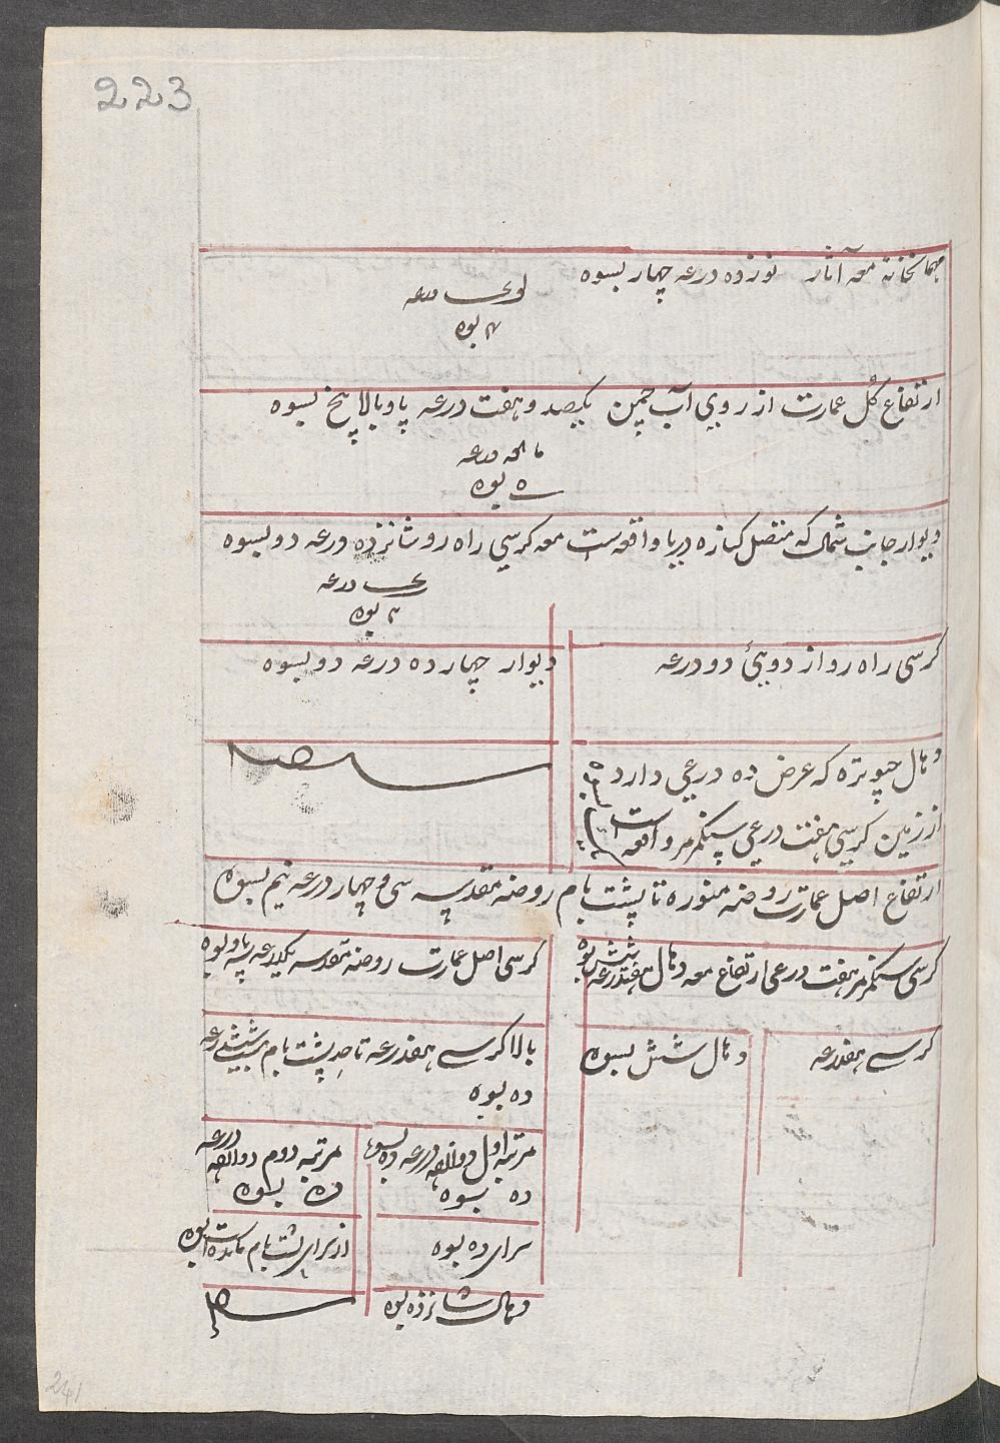 223
مهمانخانه معه آثار نوزده درعه چهار بسوه
درعه
۴ بوه
ارتفاع کُل عمارت از روی آب جمن یکصد و هفت درعه پاو بالا پنج بسوه
درعه
۵ بوه
دیوار جانب شمال که متصل کنازه دریا واقعست معه کرسی راه رو شانزده درعه دو بسوه
درعه
۲ بوه
کرسی راه رو از دو درعه
دیوار چهارده درعه دو بسوه
دهال چبوتره که عرض ده درعی دارد
از زمین کرسی هفت درعی سنگمرمر واقعه است
ارتفاع اصل عمارت روضه منوره تا پشت بام روضه مقدسه سی و چهار درعه نیم بسوه
کرسی سنگمرمر هفت درعی ارتفاع معه دهال هفتدرعه شش بوه
کرسی اصل عمارت روضه مقدسه یکدرعه پاو بوه
کرسی هفدرعه
دهال شش بسوه
بالا کرسی هفدرعه تا حد پشت بام درعه
ده بوه
مرتبه اول درعه ده بسوه
ده بسوه
مرتبه دوم درعه
ده بسوه
سرای ده بوه
از سرای پشت بام بوه
دهال شانزده بوه
241